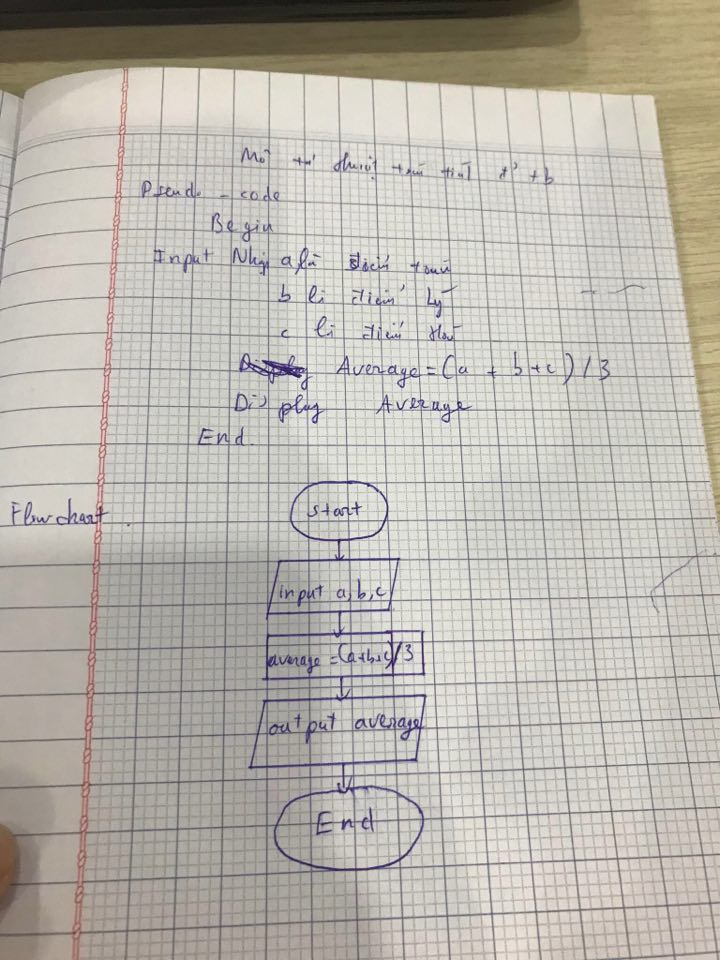 Mô tả thuật toán tính đ' + b
Pseudo - code
Begin
Input Nhập a là điểm toán
b là điểm Lý
c là điểm Hoá
Average = (a + b + c) / 3
Display Average
End.
Flowchart.
Start
input a, b, c
average = (a+b+c)/3
output average
End